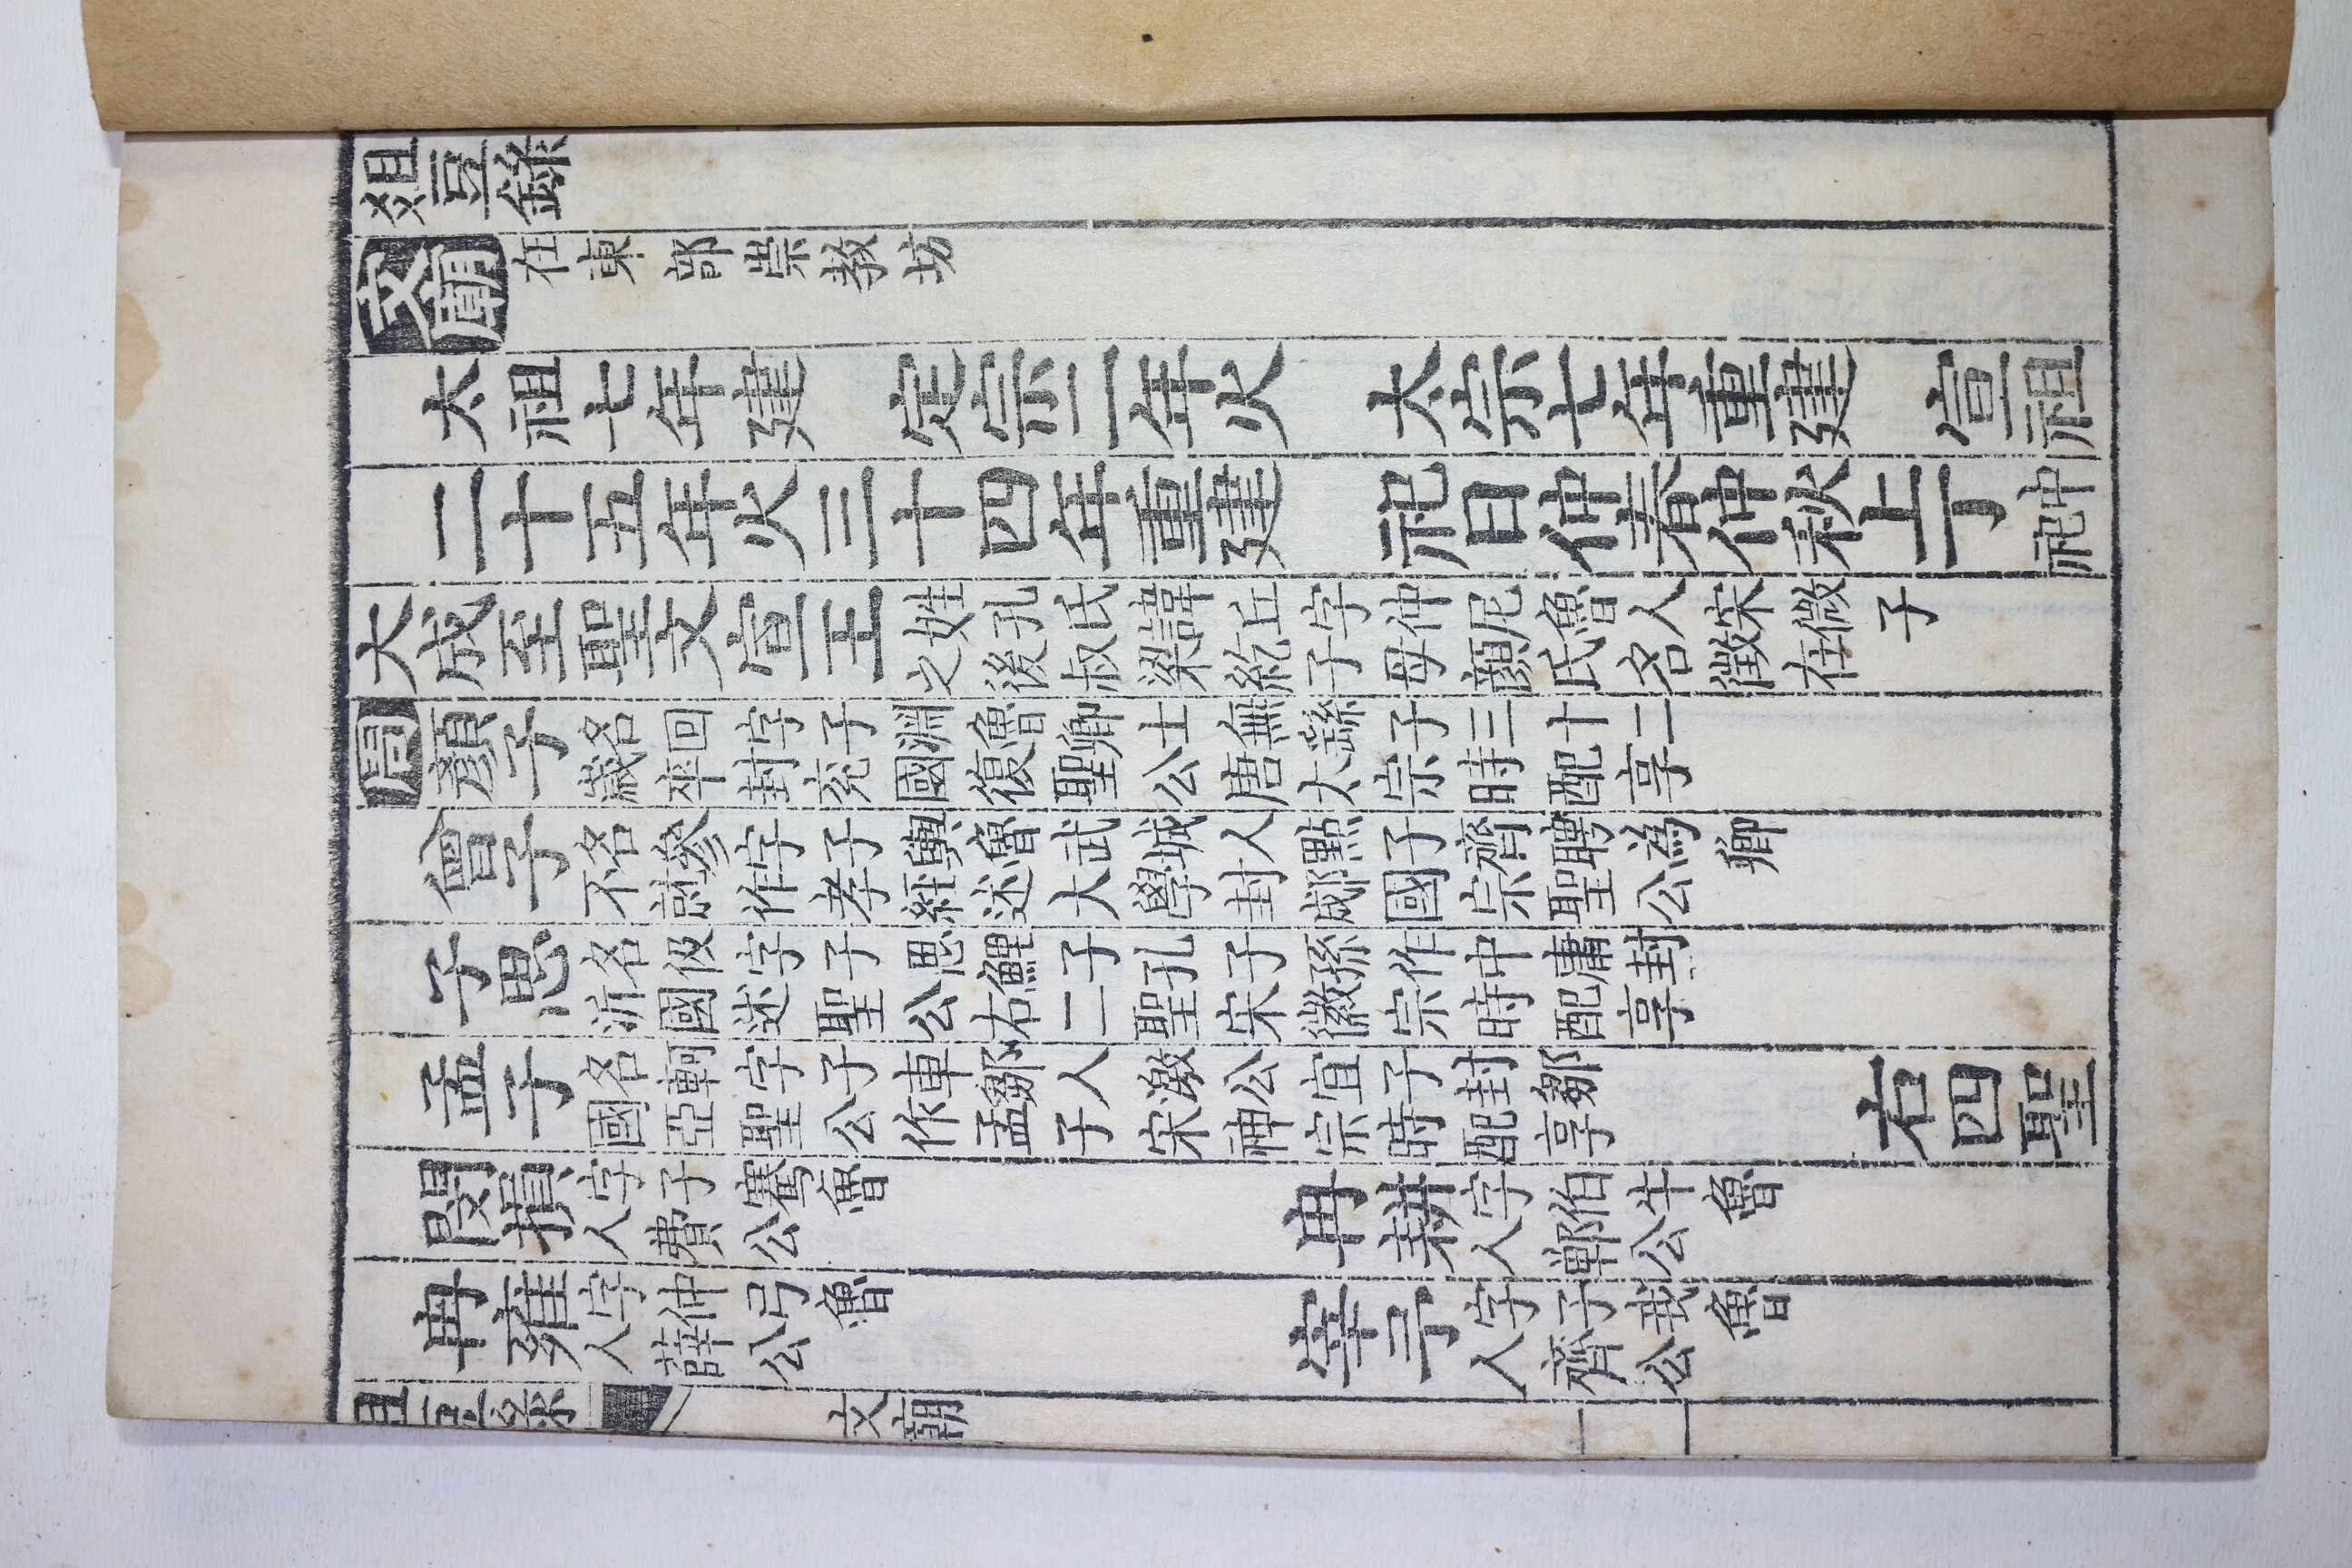 爼豆錄
文廟 在東部崇教坊
太祖七年建 定宗二年火 太宗七年重建 宣祖
二十五年火三十四年重建 祀日仲春仲秋上丁 中祀
大成至聖文宣王 姓孔氏諱丘字仲尼魯人宋微子
之後叔梁紇子母顔氏名徵在
周 顏子 名回字子淵魯卿士無繇子三十二
歲卒封兗國復聖公唐太宗時配享
曾子 名參字子輿魯武城人點子齊聘為卿
不就作孝經述大學封郕國宗聖公
子思 名伋字子思鯉子孔子孫作中庸封
沂國述聖公右二聖宋徽宗時配享
孟子 名軻字子車鄒人激公宜子封鄒
國亞聖公作孟子宋神宗時配享 右四聖
閔損 字子騫魯
人費公 冉耕 字伯牛魯
人鄆公
冉雍 字仲弓魯
人薛公 宰予 字子我魯
人齊公
俎豆錄 文廟 一